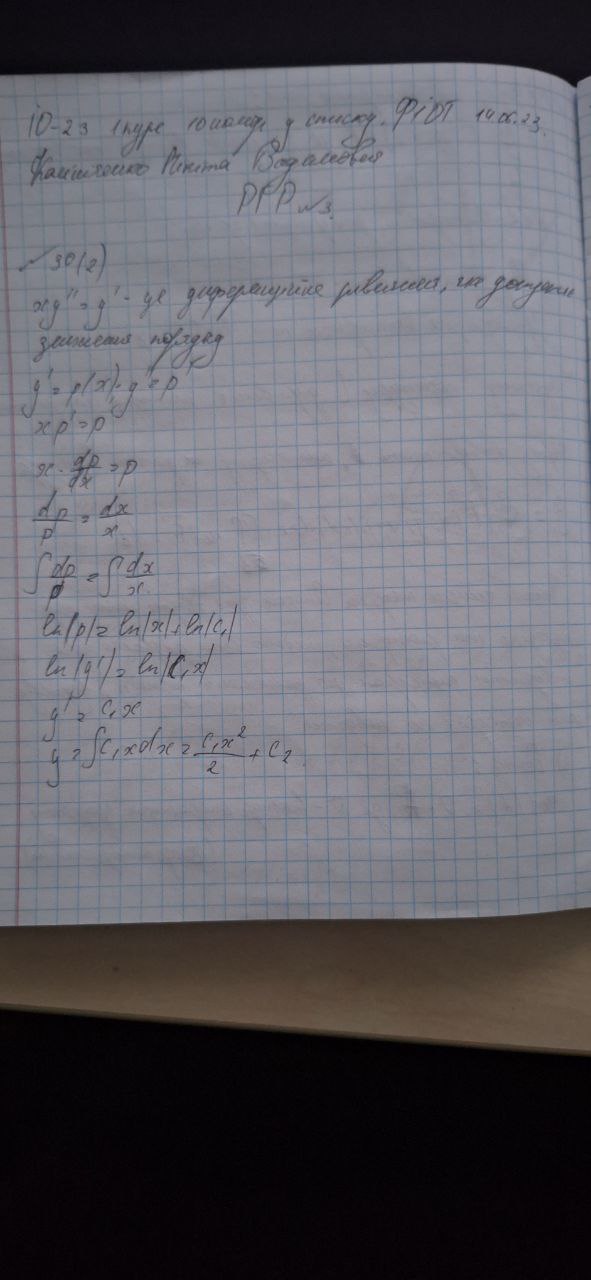 ІО-23 1 курс 10 номер у списку. ФІОТ 14.06.23.
Микита Вадимович
РГР №3.
№ 30(2)
xy'' = y' - це диференційне рівняння, яке допускає
зниження порядку
y' = p(x); y'' = p'
xp' = p
x · dp/dx = p
dp/p = dx/x
∫ dp/p = ∫ dx/x
ln|p| = ln|x| + ln|C₁|
ln|y'| = ln|C₁x|
y' = C₁x
y = ∫ C₁x dx = C₁x²/2 + C₂